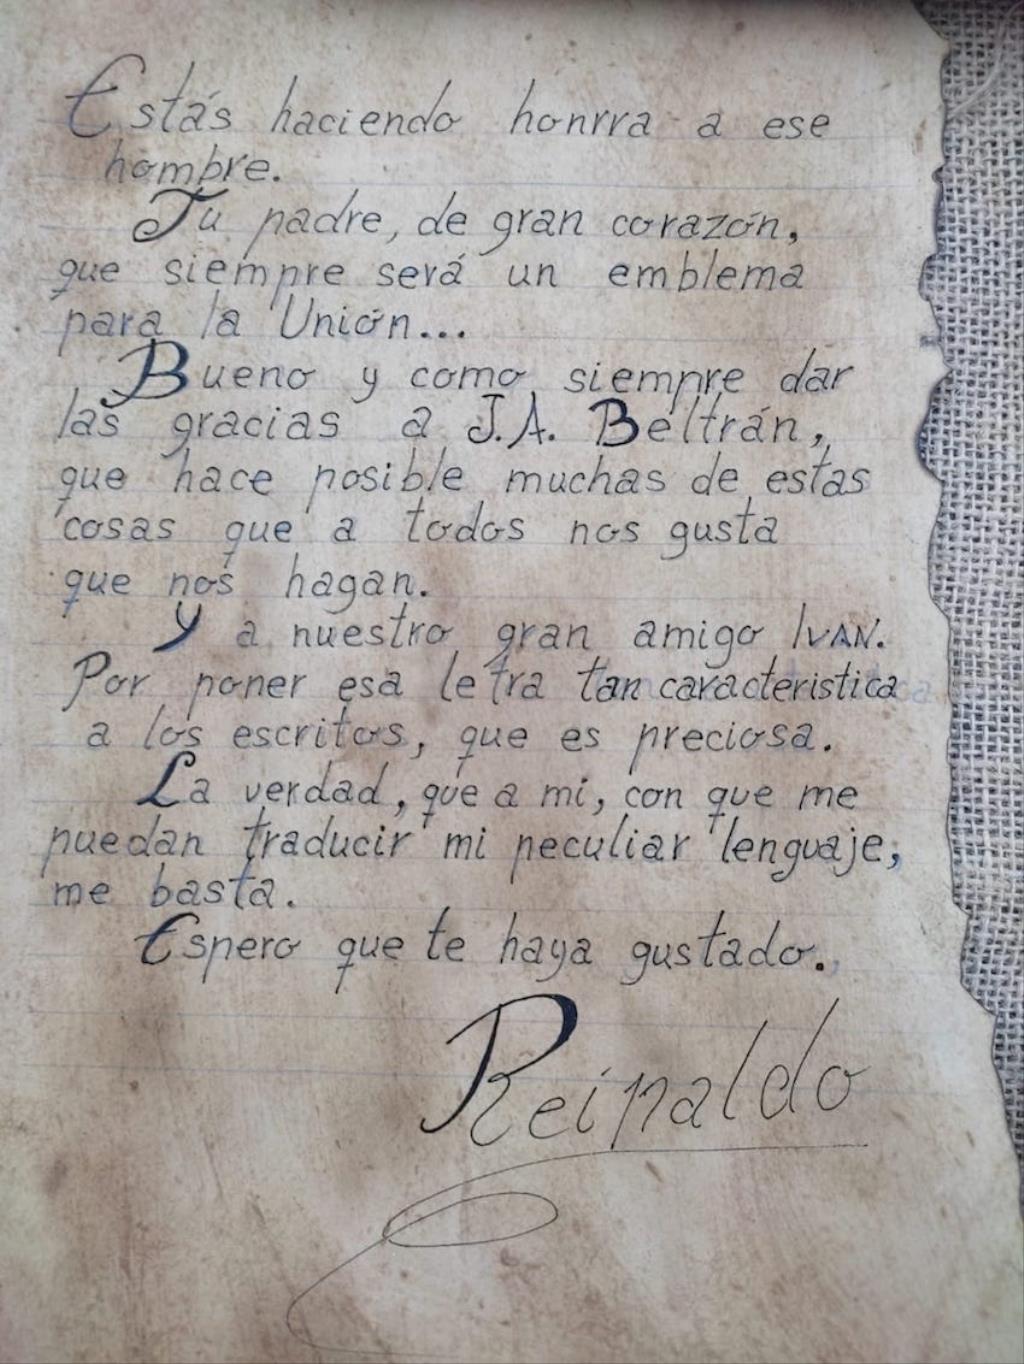 Estás haciendo honrra a ese
hombre.
Tu padre, de gran corazón,
que siempre será un emblema
para la Unión...
Bueno y como siempre dar
las gracias a J.A. Beltrán,
que hace posible muchas de estas
cosas que a todos nos gusta
que nos hagan.
Y a nuestro gran amigo IVAN.
Por poner esa letra tan caracteristica
a los escritos, que es preciosa.
La verdad, que a mi, con que me
puedan traducir mi peculiar lenguaje,
me basta.
Espero que te haya gustado.
Reinaldo